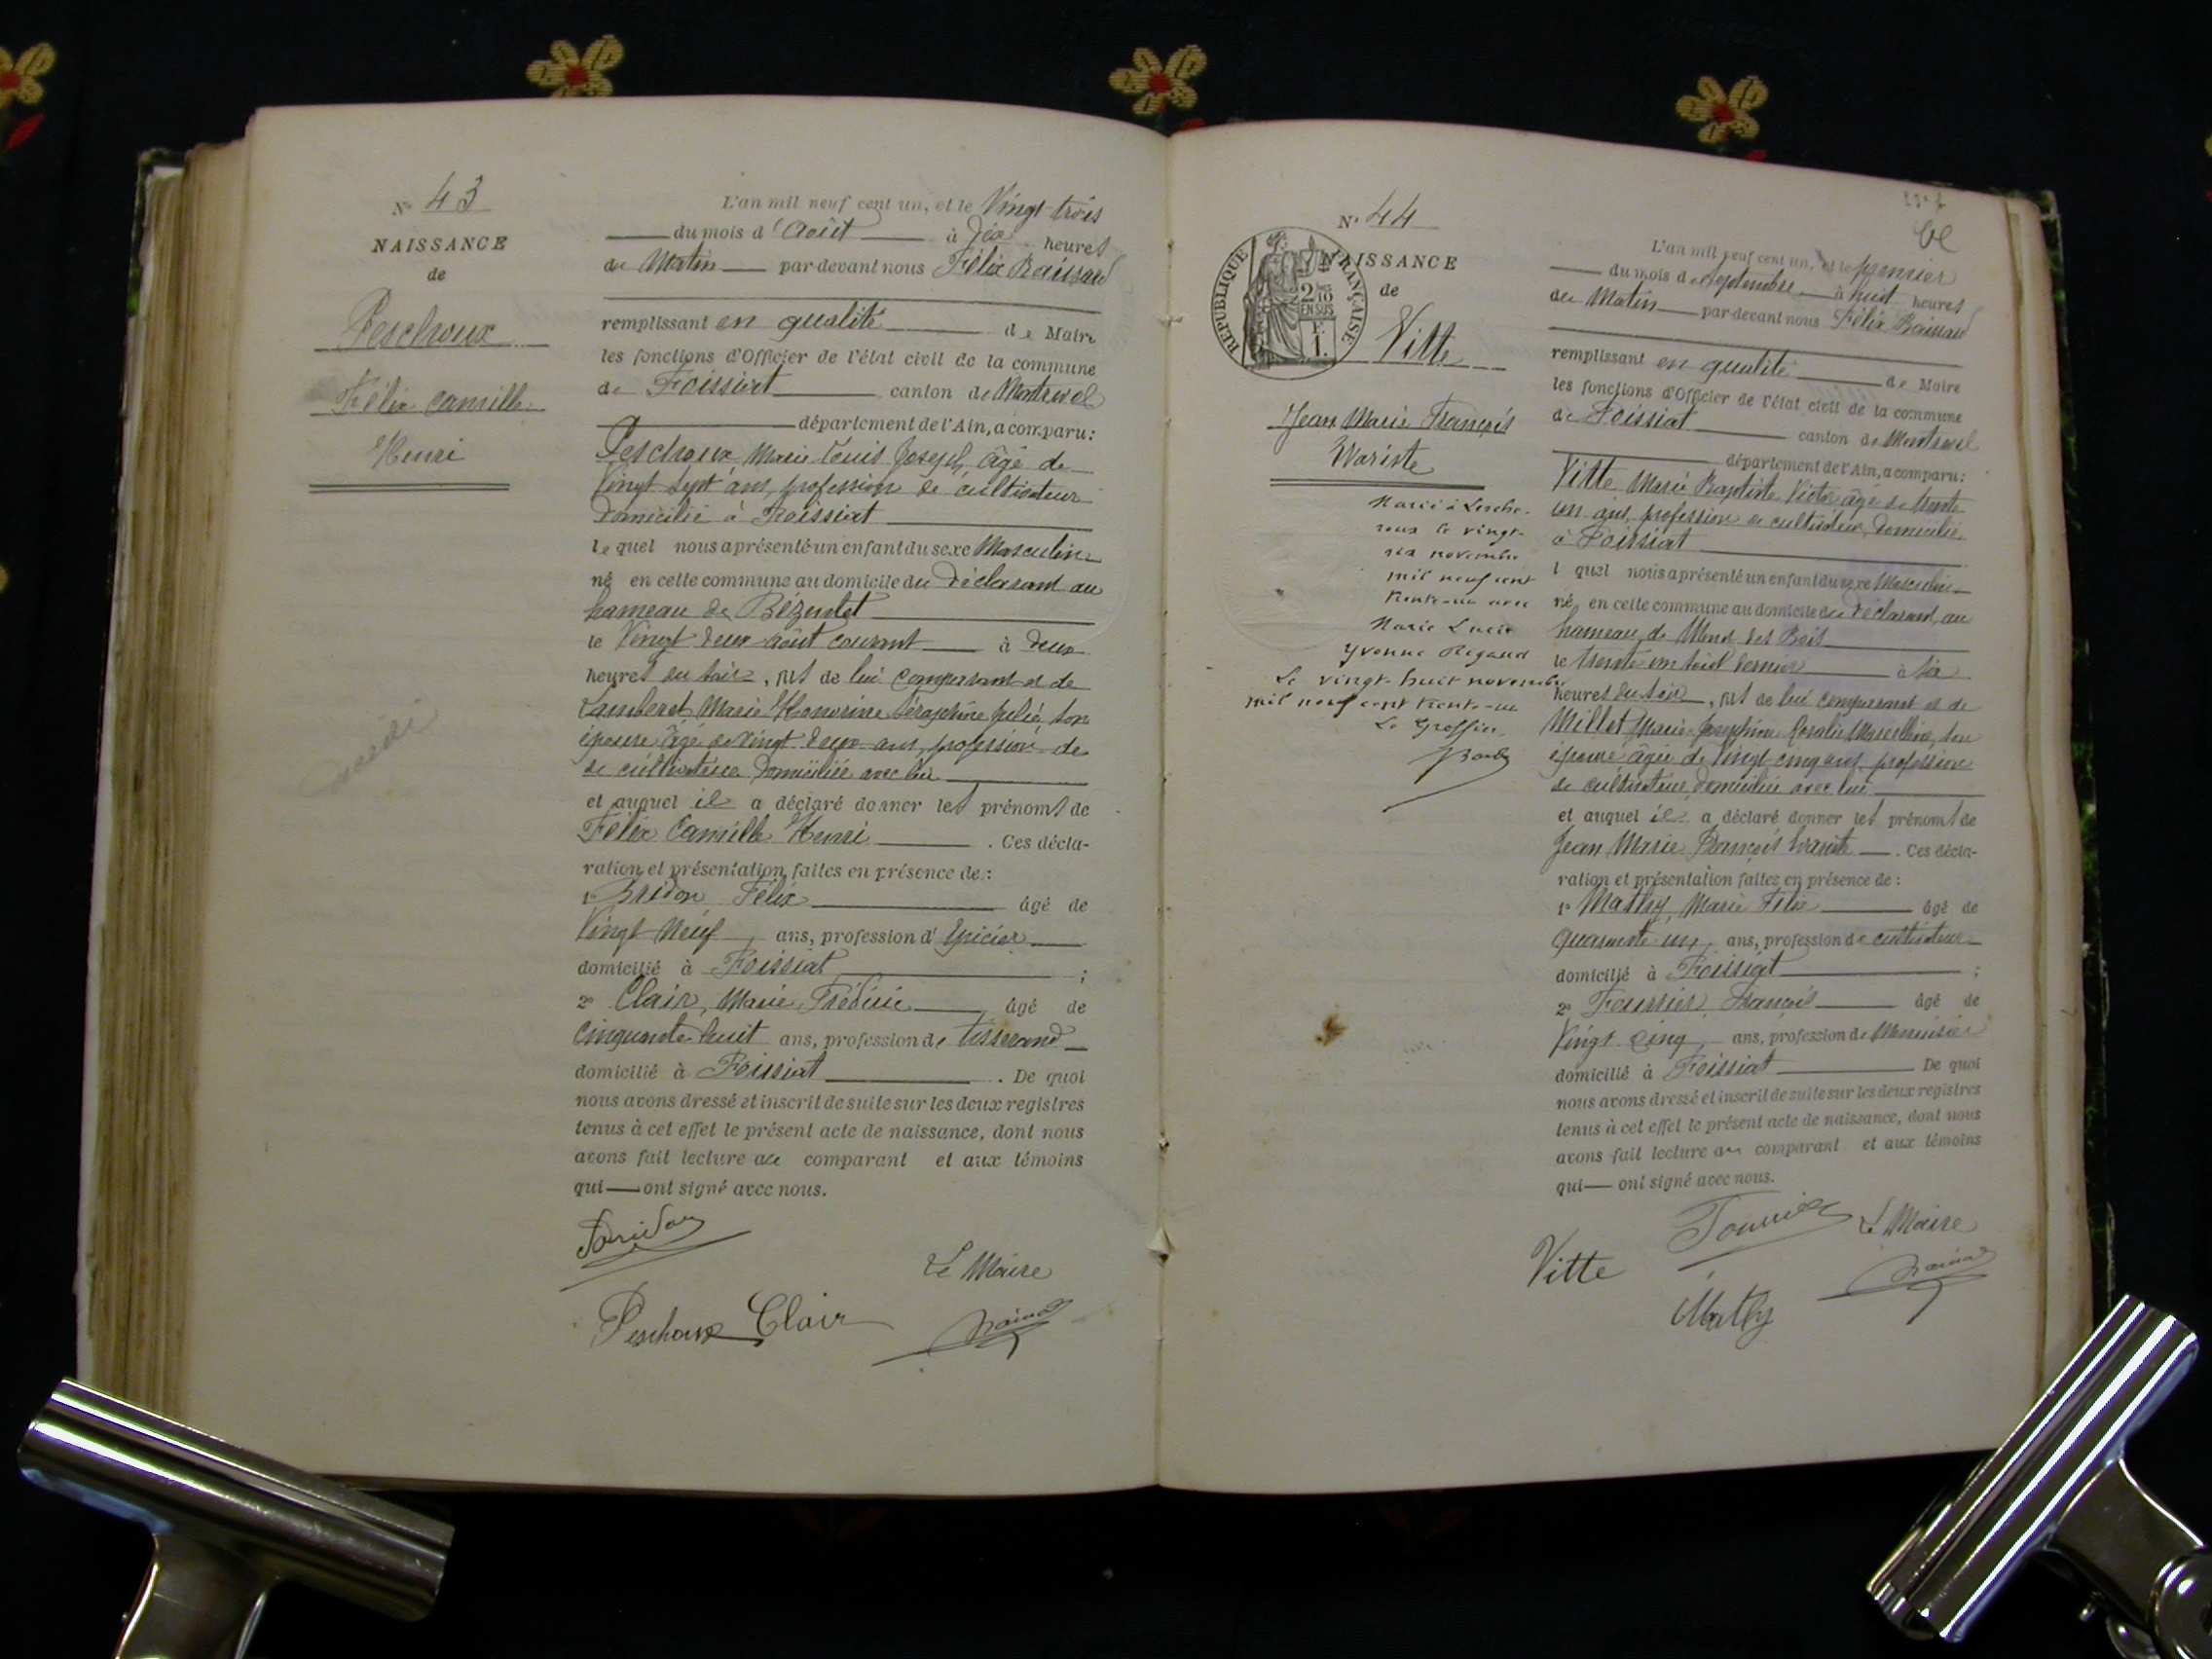 N° 43
NAISSANCE
de
Peschoux
Félix Camille
Henri
L'an mil neuf cent un, et le Vingt trois
du mois d'Août à dix heures
du Matin par-devant nous Félix
remplissant en qualité de Maire
les fonctions d'Officier de l'état civil de la commune
de Foissiat canton de Montrevel
département de l'Ain, a comparu:
Peschoux Marie Louis Joseph, âgé de
Vingt sept ans, profession de cultivateur
domicilié à Foissiat
lequel nous a présenté un enfant du sexe Masculin
né en cette commune au domicile du déclarant au
hameau de
le Vingt deux août courant à deux
heures du soir, fils de lui comparant et de
Marie Honorine Séraphine Julie, son
épouse âgé de vingt deux ans, profession de
de cultivatrice domiciliée avec lui
et auquel il a déclaré donner les prénoms de
Félix Camille Henri. Ces décla-
ration et présentation faites en présence de:
1° Bridon Félix âgé de
Vingt Neuf ans, profession d'Epicier
domicilié à Foissiat ;
2° Clair, Marie Frédéric âgé de
Cinquante huit ans, profession de tisserand
domicilié à Foissiat. De quoi
nous avons dressé et inscrit de suite sur les deux registres
tenus à cet effet le présent acte de naissance, dont nous
avons fait lecture au comparant et aux témoins
qui ont signé avec nous.
Bridon
Le Maire
Peschoux Clair
N° 44
NAISSANCE
de
RÉPUBLIQUE FRANÇAISE
2/10
EN SUS
F.
1.
Vitte
Jean Marie François
Wariste
Marié à Lesche-
roux le vingt-
six novembre
mil neuf cent
trente-un avec
Marie Lucie
Yvonne Regaud
Le vingt-huit novembre
mil neuf cent trente-un
Le Greffier,
L'an mil neuf cent un, et le premier
du mois de Septembre à huit heures
du Matin par-devant nous Félix
remplissant en qualité de Maire
les fonctions d'Officier de l'état civil de la commune
de Foissiat canton de Montrevel
département de l'Ain, a comparu:
Vitte Marie Baptiste Victor âgé de trente
un ans, profession de cultivateur, domicilié
à Foissiat
lquel nous a présenté un enfant du sexe Masculin
né, en cette commune au domicile du déclarant, au
hameau de des Bois
le trente un août dernier à six
heures du soir, fils de lui comparant et de
Millet Marie Joséphine Coralie Marcelline, son
épouse âgée de Vingt cinq ans, profession
de cultivatrice, domiciliée avec lui
et auquel il a déclaré donner les prénoms de
Jean Marie François Wariste. Ces décla-
ration et présentation faites en présence de:
1° Mathy Marie Félix âgé de
quarante un ans, profession de cultivateur
domicilié à Foissiat ;
2° Fournier François âgé de
Vingt Cinq, ans, profession de Menuisier
domicilié à Foissiat De quoi
nous avons dressé et inscrit de suite sur les deux registres
tenus à cet effet le présent acte de naissance, dont nous
avons fait lecture au comparant et aux témoins
qui ont signé avec nous.
Fournier Le Maire
Vitte
Mathy